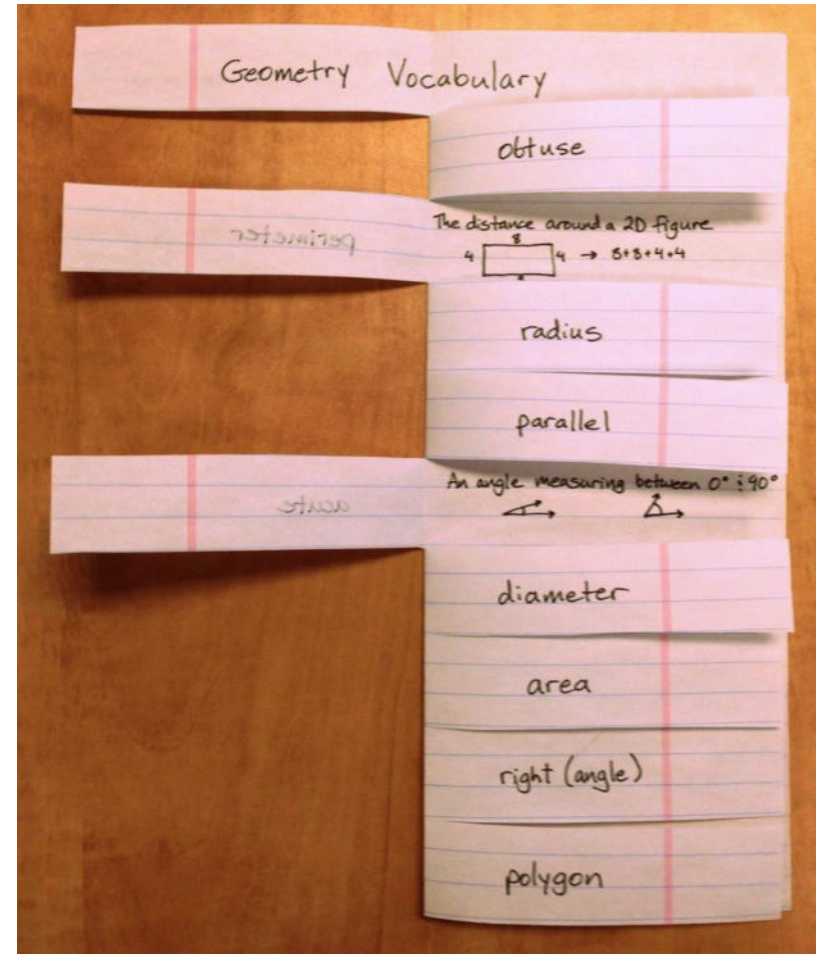 Geometry Vocabulary
obtuse
perimeter
The distance around a 2D figure
8
4 4 → 8+8+4+4
8
radius
parallel
acute
An angle measuring between 0° & 90°
diameter
area
right (angle)
polygon